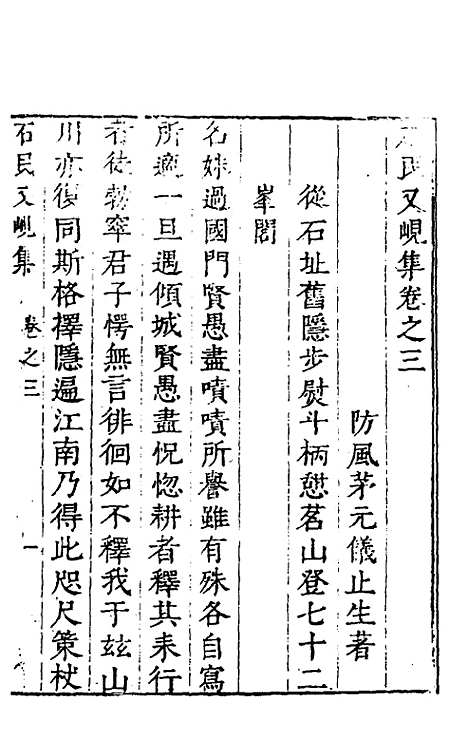 石民又峴集卷之三
防風茅元儀止生著
從石址舊隱步熨斗柄憩茗山登七十二
峯閣
名姝過國門賢愚盡嘖嘖所譽雖有殊各自寫
所適一旦遇傾城賢愚盡怳惚耕者釋其耒行
者徒勃窣君子愕無言徘徊如不釋我于玆山
川亦復同斯格擇隱遍江南乃得此咫尺策杖
石民又峴集 卷之三 一